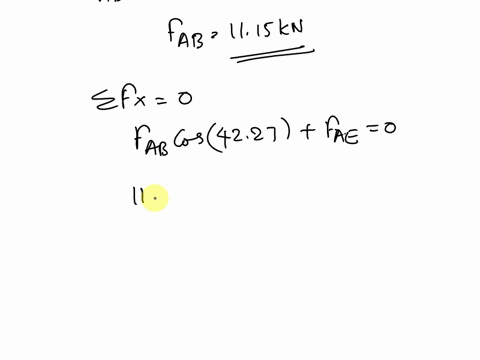 AB
F_AB = 11.15 kN
ΣFx = 0
F_AB Cos(42.27) + F_AE = 0
11.